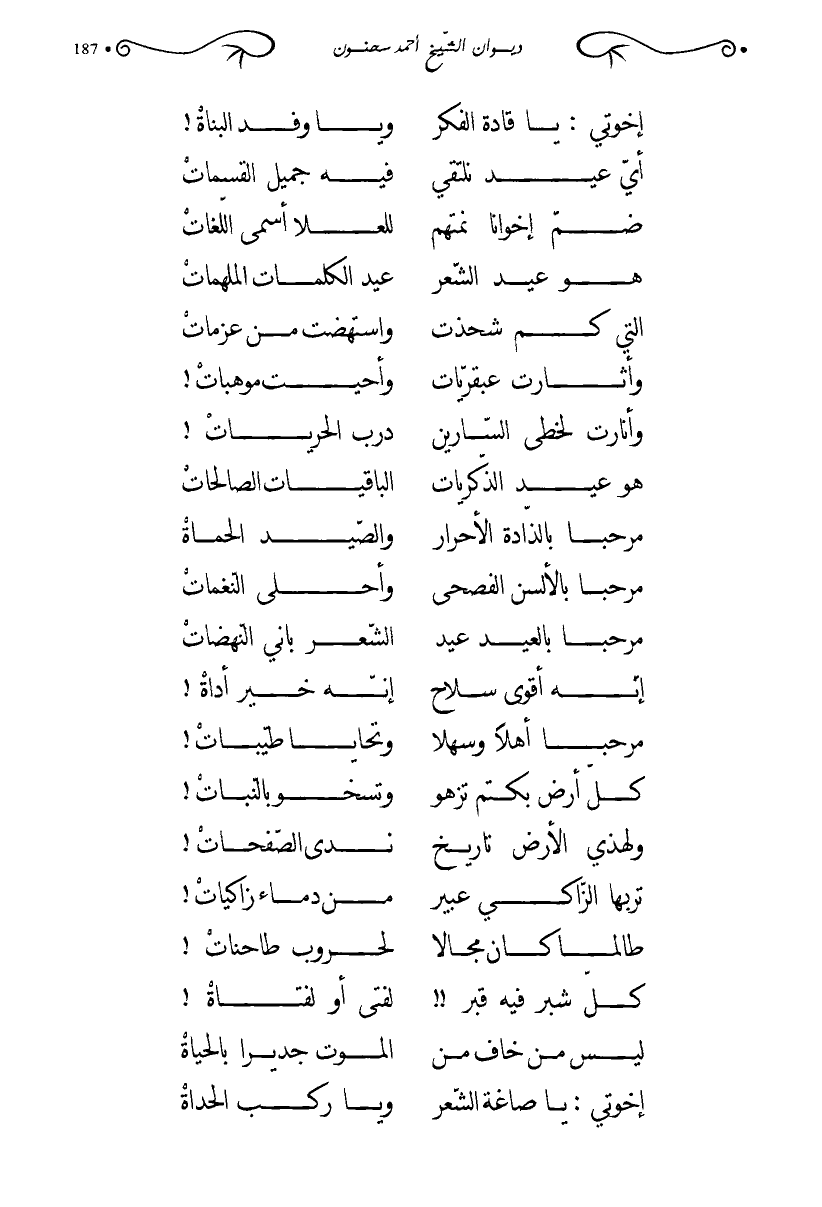 ديوان الشّيخ أحمد سحنون • 187
إخوتي : يا قادة الفكر ويا وفد البناةْ !
أيّ عيد نلتقي فيه جميل القسماتْ
ضمّ إخوانا نمتهم للعلا أسمى اللّغاتْ
هو عيد الشّعر عيد الكلمات الملهماتْ
التي كم شحذت واستهضت من عزماتْ
وأثارت عبقريّات وأحيت موهباتْ !
وأنارت لخطى السّارين درب الحرياتْ !
هو عيد الذكريات الباقيات الصالحاتْ
مرحبا بالذّادة الأحرار والصّيد الحماةْ
مرحبا بالألسن الفصحى وأحلى النّغماتْ
مرحبا بالعيد عيد الشّعر باني النّهضاتْ
إنّه أقوى سلاح إنّه خير أداةْ !
مرحبا أهلاً وسهلا وتحايا طيّباتْ !
كلّ أرض بكم تزهو وتسخو بالنّباتْ !
ولهذي الأرض تاريخ ندى الصّفحاتْ !
تربها الزّاكي عبير من دماء زاكياتْ !
طالما كان مجالا لحروب طاحناتْ !
كلّ شبر فيه قبر !! لفتى أو لفتاةْ !
ليس من خاف من الموت جديرا بالحياةْ
إخوتي : يا صاغة الشّعر ويا ركب الحداةْ